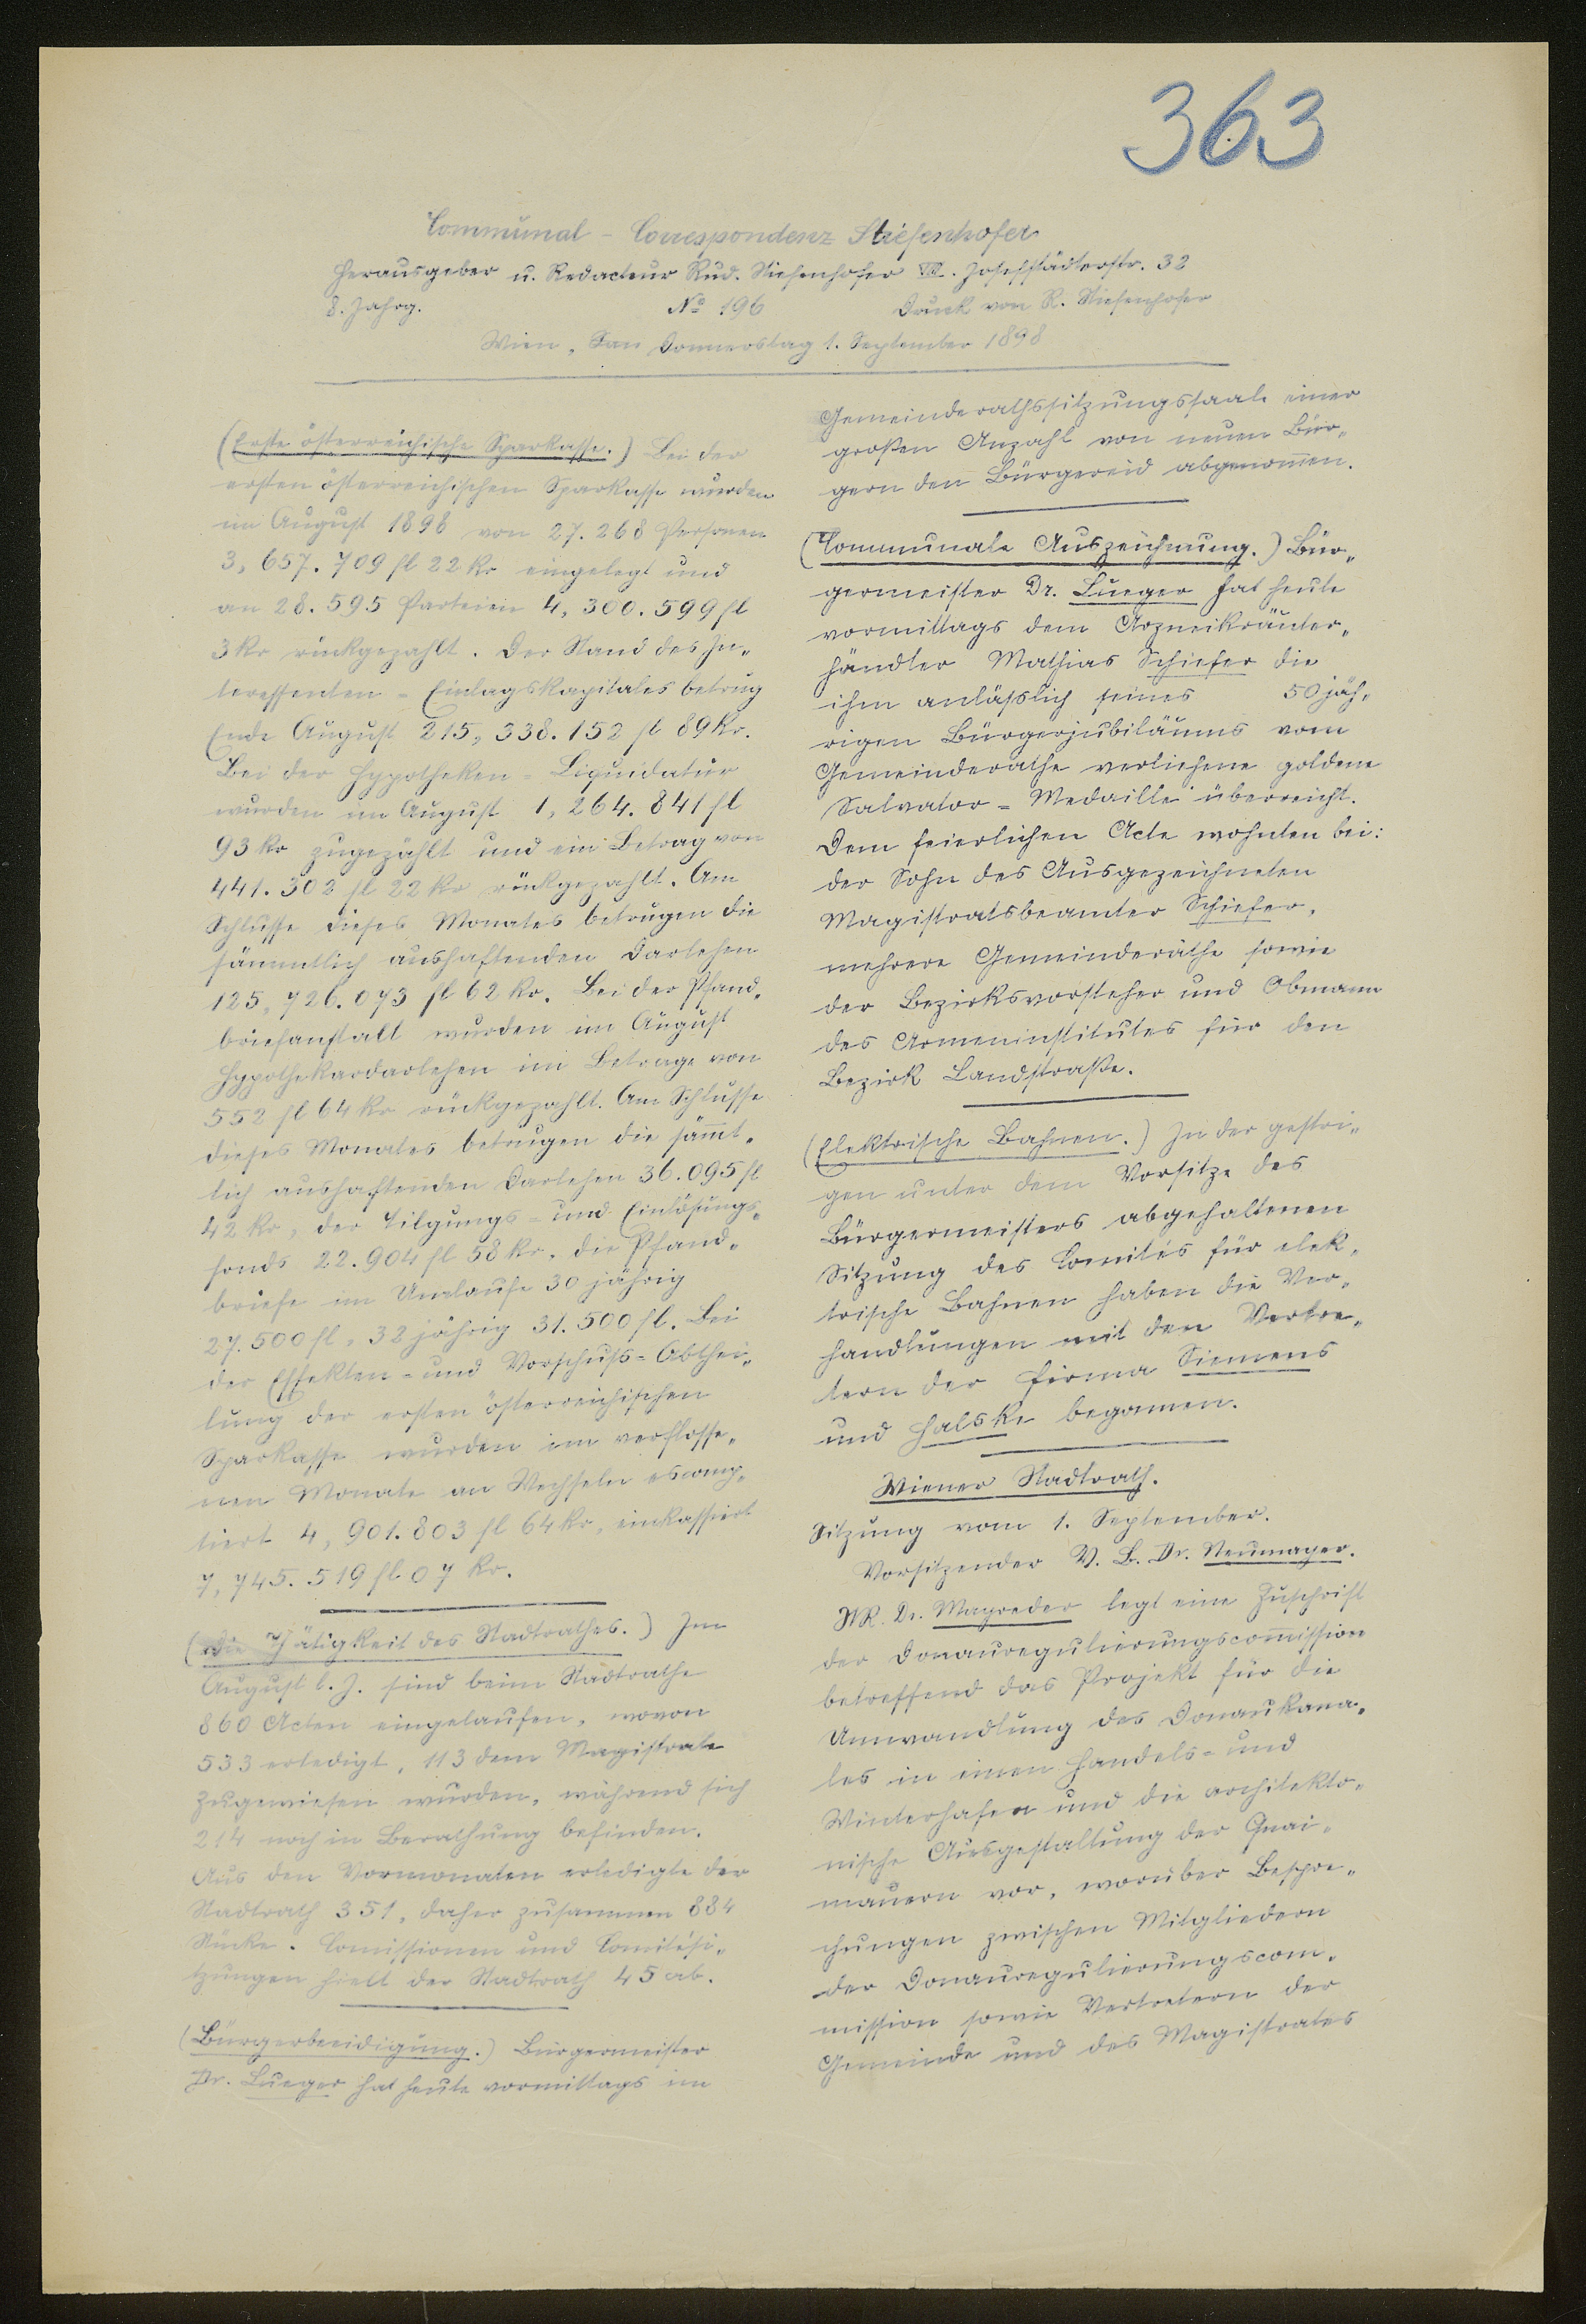 363
Communal - Correspondenz Stiefenhofer
Herausgeber u. Redacteur Rud. Stiefenhofer VIII. Josefstädterstr. 32
8. Jahrg. No 196 Druck von R. Stiefenhofer
Wien, Donnerstag 1. September 1898
(Erste österreichische Sparkasse.) Bei der
ersten österreichischen Sparkasse wurden
im August 1898 von 27.268 Personen
3,657.709 fl 22 kr eingelegt und
an 28.595 Parteien 4,300.599 fl
3 kr rückgezahlt. Der Stand des In-
teressenten - Einlagskapitales betrug
Ende August 215,338.152 fl 89 kr.
Bei der Hypotheken = Liquidatur
wurden im August 1,264.841 fl
93 kr zugezählt und ein Betrag von
441.302 fl 22 kr rückgezahlt. Am
Schlusse dieses Monates betrugen die
sämmtlich aushaftenden Darlehen
125,726.073 fl 62 kr. Bei der Pfand-
briefanstalt wurden im August
Hypothekardarlehen im Betrage von
552 fl 64 kr rückgezahlt. Am Schlusse
dieses Monates betrugen die sämt-
lich aushaftenden Darlehen 36.095 fl
42 kr, der Tilgungs = und Einlösungs-
fonds 22.904 fl 58 kr. die Pfand-
briefe im Umlaufe 30 jährig
27.500 fl, 32 jährig 31.500 fl. Bei
der Effekten = und Vorschuß = Abthei-
lung der ersten österreichischen
Sparkasse wurden im verflosse-
nen Monate an Wechseln escomp-
tiert 4,901.803 fl 64 kr, einkassiert
7,745.519 fl 07 kr.
(Die Thätigkeit des Stadtrathes.) Im
August l. J. sind beim Stadtrathe
860 Acten eingelaufen, wovon
533 erledigt, 113 dem Magistrate
zugewiesen wurden, während sich
214 noch in Berathung befinden.
Aus den Vormonaten erledigte der
Stadtrath 351, daher zusammen 884
Stücke. Comissionen und Comitési-
tzungen hielt der Stadtrath 45 ab.
(Bürgerbeeidigung.) Bürgermeister
Dr. Lueger hat heute vormittags im
Gemeinderathssitzungssaale einer
großen Anzahl von neuen Bür-
gern den Bürgereid abgenomen.
(Communale Auszeichnung.) Bür-
germeister Dr. Lueger hat heute
vormittags dem Arzneikräuter-
händler Mathias Schiefer die
ihm anläßlich seines 50 jäh-
rigen Bürgerjubiläums vom
Gemeinderathe verliehene goldene
Salvator = Medaille überreicht.
Dem feierlichen Acte wohnten bei:
der Sohn des Ausgezeichneten
Magistratsbeamter Schiefer,
mehrere Gemeinderäthe sowie
der Bezirksvorsteher und Obmann
des Armeninstitutes für den
Bezirk Landstraße.
(Elektrische Bahnen.) In der gestri-
gen unter dem Vorsitze des
Bürgermeisters abgehaltenen
Sitzung des Comités für elek-
trische Bahnen haben die Ver-
handlungen mit den Vertre-
tern der Firma Siemens
und Halske begonnen.
Wiener Stadtrath.
Sitzung vom 1. September.
Vorsitzender V. B. Dr. Neumayer.
StR. Dr. Mayreder legt eine Zuschrift
der Donauregulierungscomission
betreffend das Projekt für die
Umwandlung des Donaukana-
les in einen Handels = und
Winterhafen und die architekto-
nische Ausgestaltung der Quai-
mauern vor, worüber Bespre-
chungen zwischen Mitgliedern
der Donauregulierungscom-
mission sowie Vertretern der
Gemeinde und des Magistrates